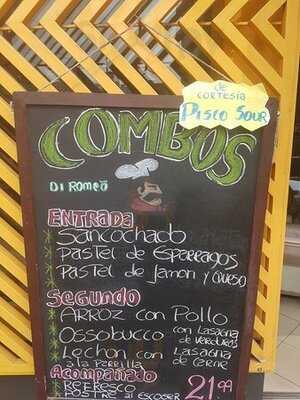 de
CORTESIA
PISCO SOUR
COMBOS
DI ROMEO
ENTRADA
* Sancochado
* Pastel de Esparragos
* Pastel de Jamon y Queso
SEGUNDO
* ARROZ con Pollo
* Ossobucco con Lasagna
de Verduras
* Lechon con Lasagna
a la Parrilla de Carne
Acompañado
* REFRESCO
* POSTRE al escoger 21.99